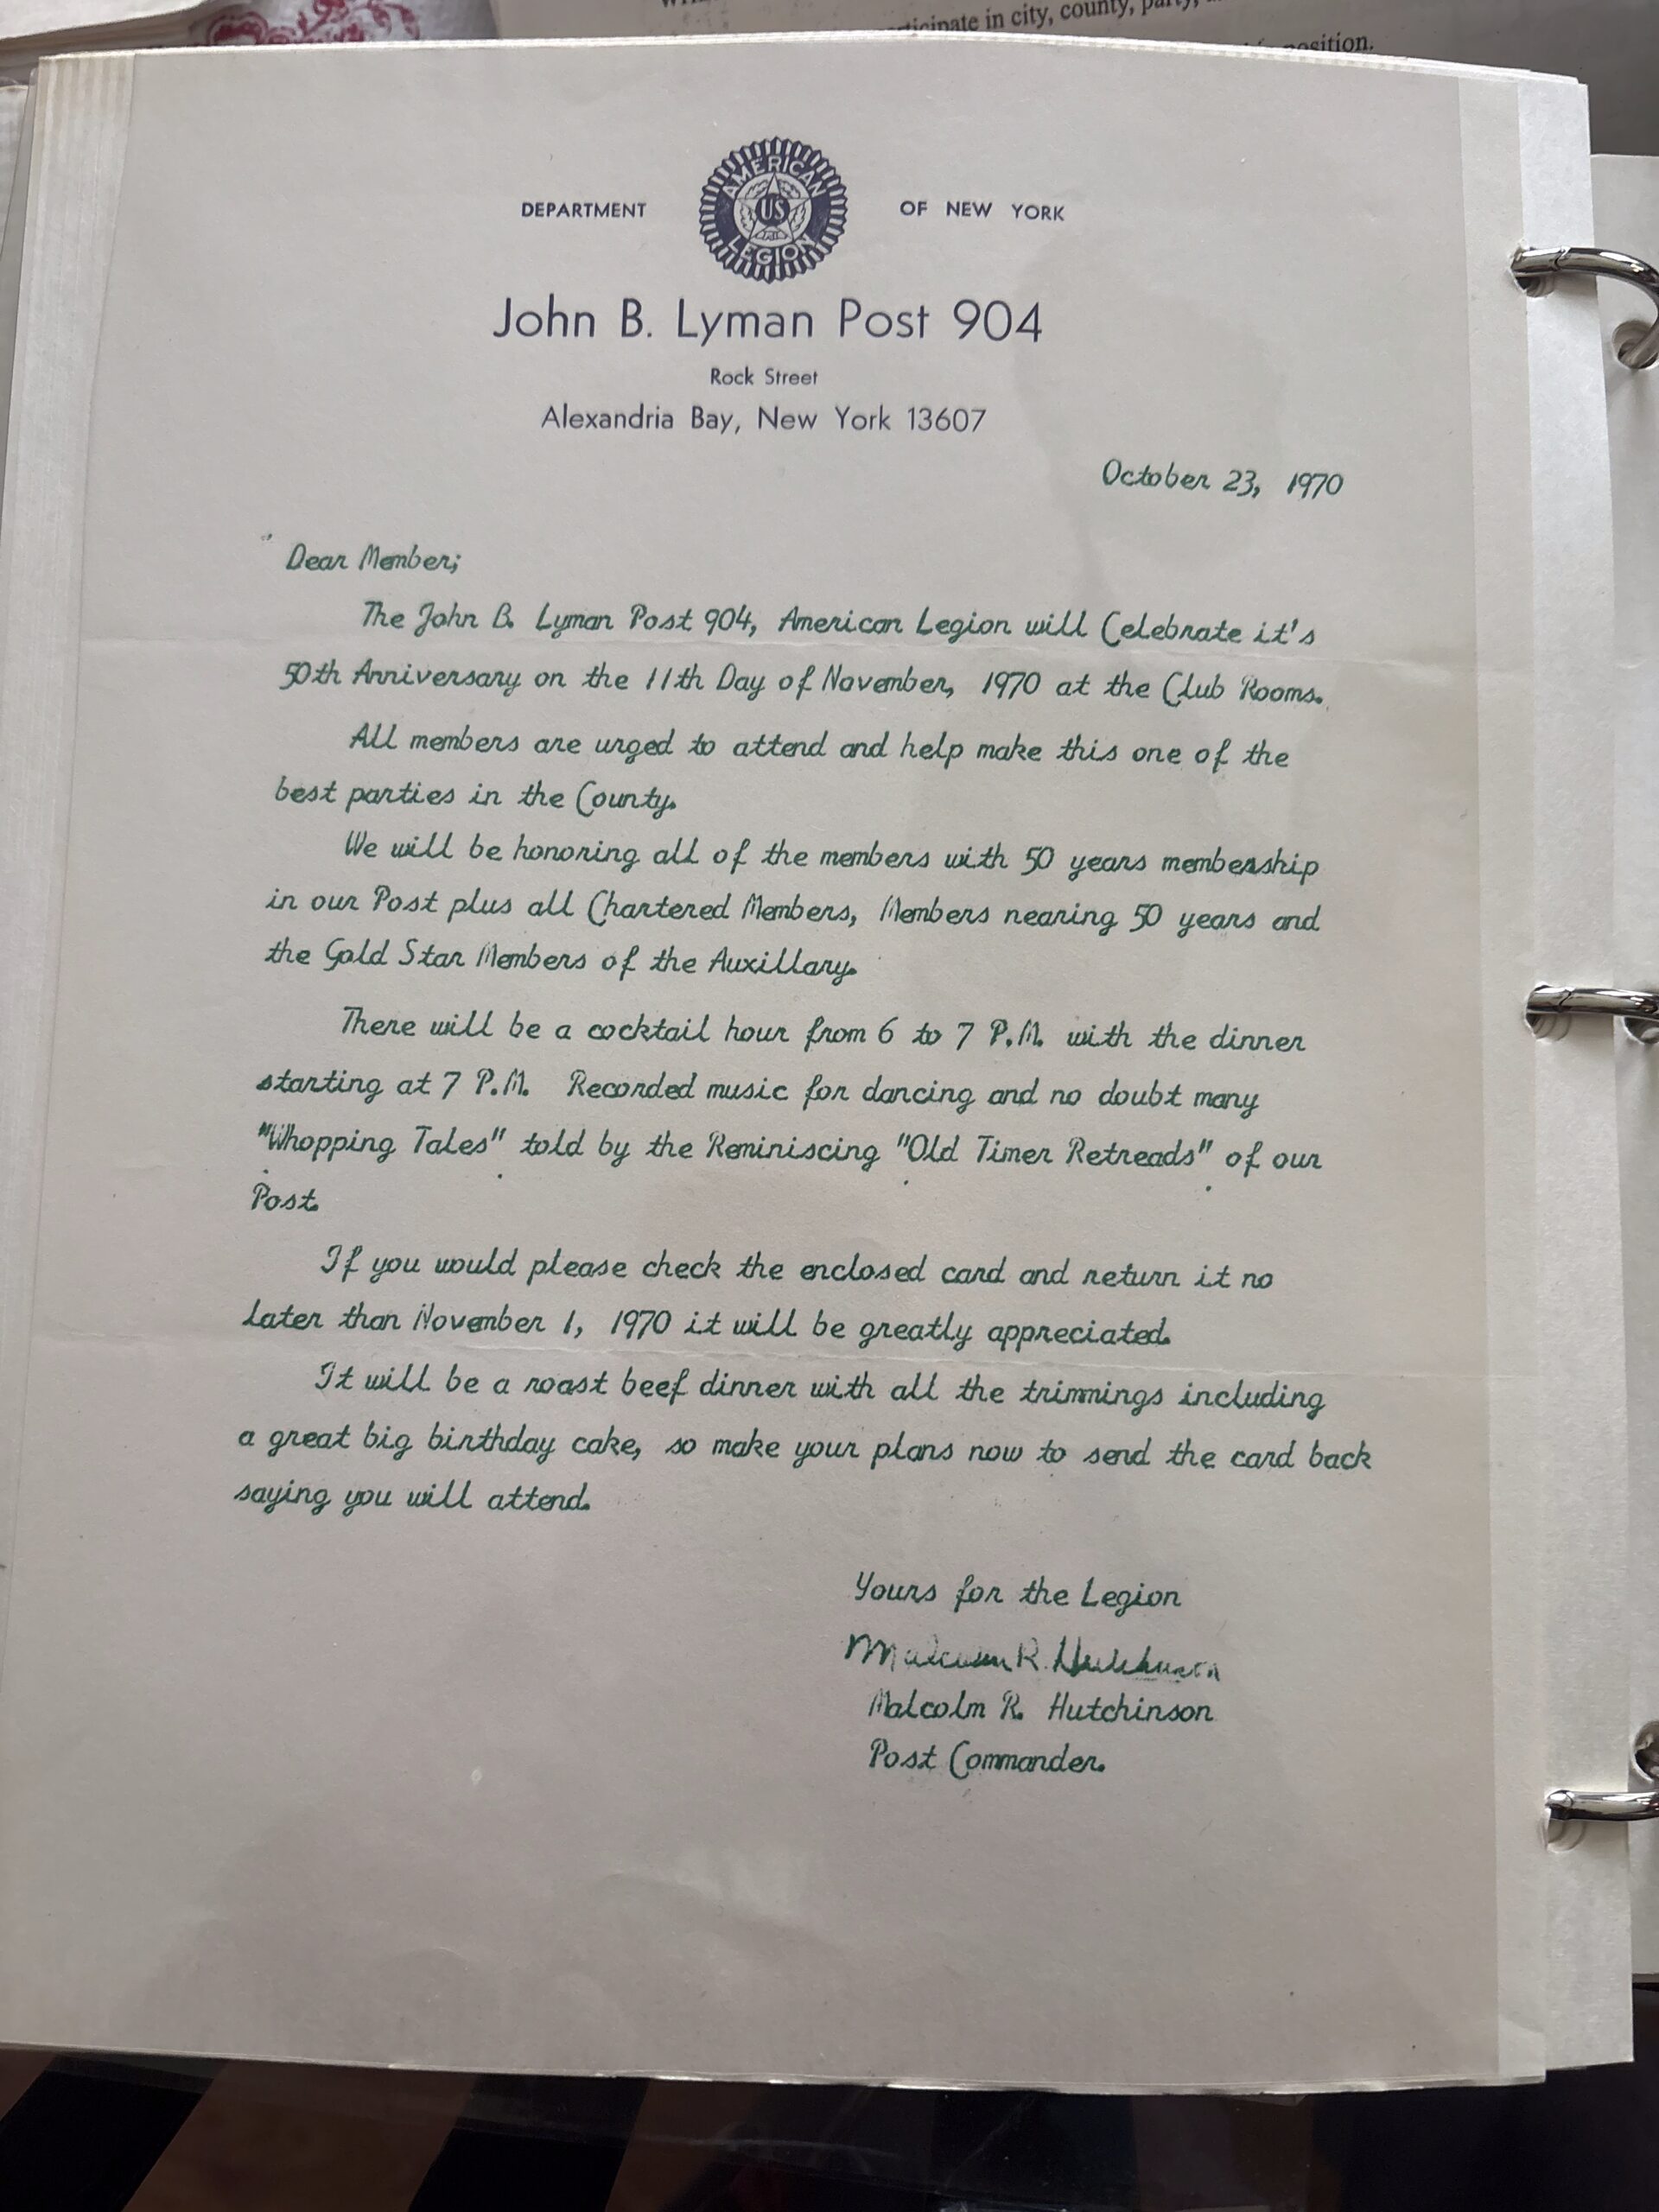 ticipate in city, county, party,
position.
DEPARTMENT OF NEW YORK
AMERICAN
US
LEGION
John B. Lyman Post 904
Rock Street
Alexandria Bay, New York 13607
October 23, 1970
Dear Member;
The John B. Lyman Post 904, American Legion will Celebrate it's
50th Anniversary on the 11th Day of November, 1970 at the Club Rooms.
All members are urged to attend and help make this one of the
best parties in the County.
We will be honoring all of the members with 50 years membership
in our Post plus all Chartered Members, Members nearing 50 years and
the Gold Star Members of the Auxillary.
There will be a cocktail hour from 6 to 7 P.M. with the dinner
starting at 7 P.M. Recorded music for dancing and no doubt many
"Whopping Tales" told by the Reminiscing "Old Timer Retreads" of our
Post.
If you would please check the enclosed card and return it no
Later than November 1, 1970 it will be greatly appreciated.
It will be a roast beef dinner with all the trimmings including
a great big birthday cake, so make your plans now to send the card back
saying you will attend.
Yours for the Legion
Malcolm R. Hutchinson
Malcolm R. Hutchinson
Post Commander.